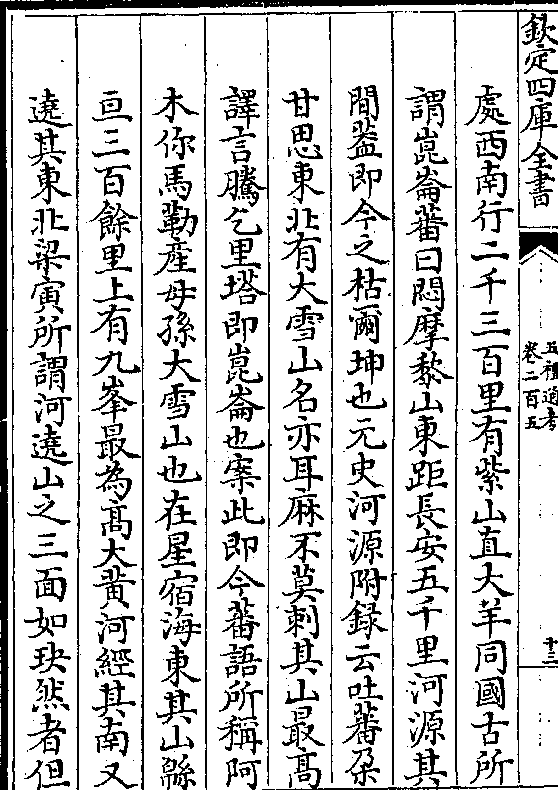 欽定四庫全書
五禮通考
卷二百五
十三
處西南行二千三百里有紫山直大羊同國古所
謂崑崙蕃曰悶摩黎山東距長安五千里河源其
間葢即今之枯爾坤也元史河源附録云吐蕃朶
甘思東北有大雪山名亦耳麻不莫剌其山最髙
譯言騰乞里塔即崑崙也案此即今蕃語所稱阿
木你馬勒産母孫大雪山也在星宿海東其山緜
亘三百餘里上有九峯最為髙大黄河經其南又
遶其東北梁寅所謂河遶山之三面如玦然者但